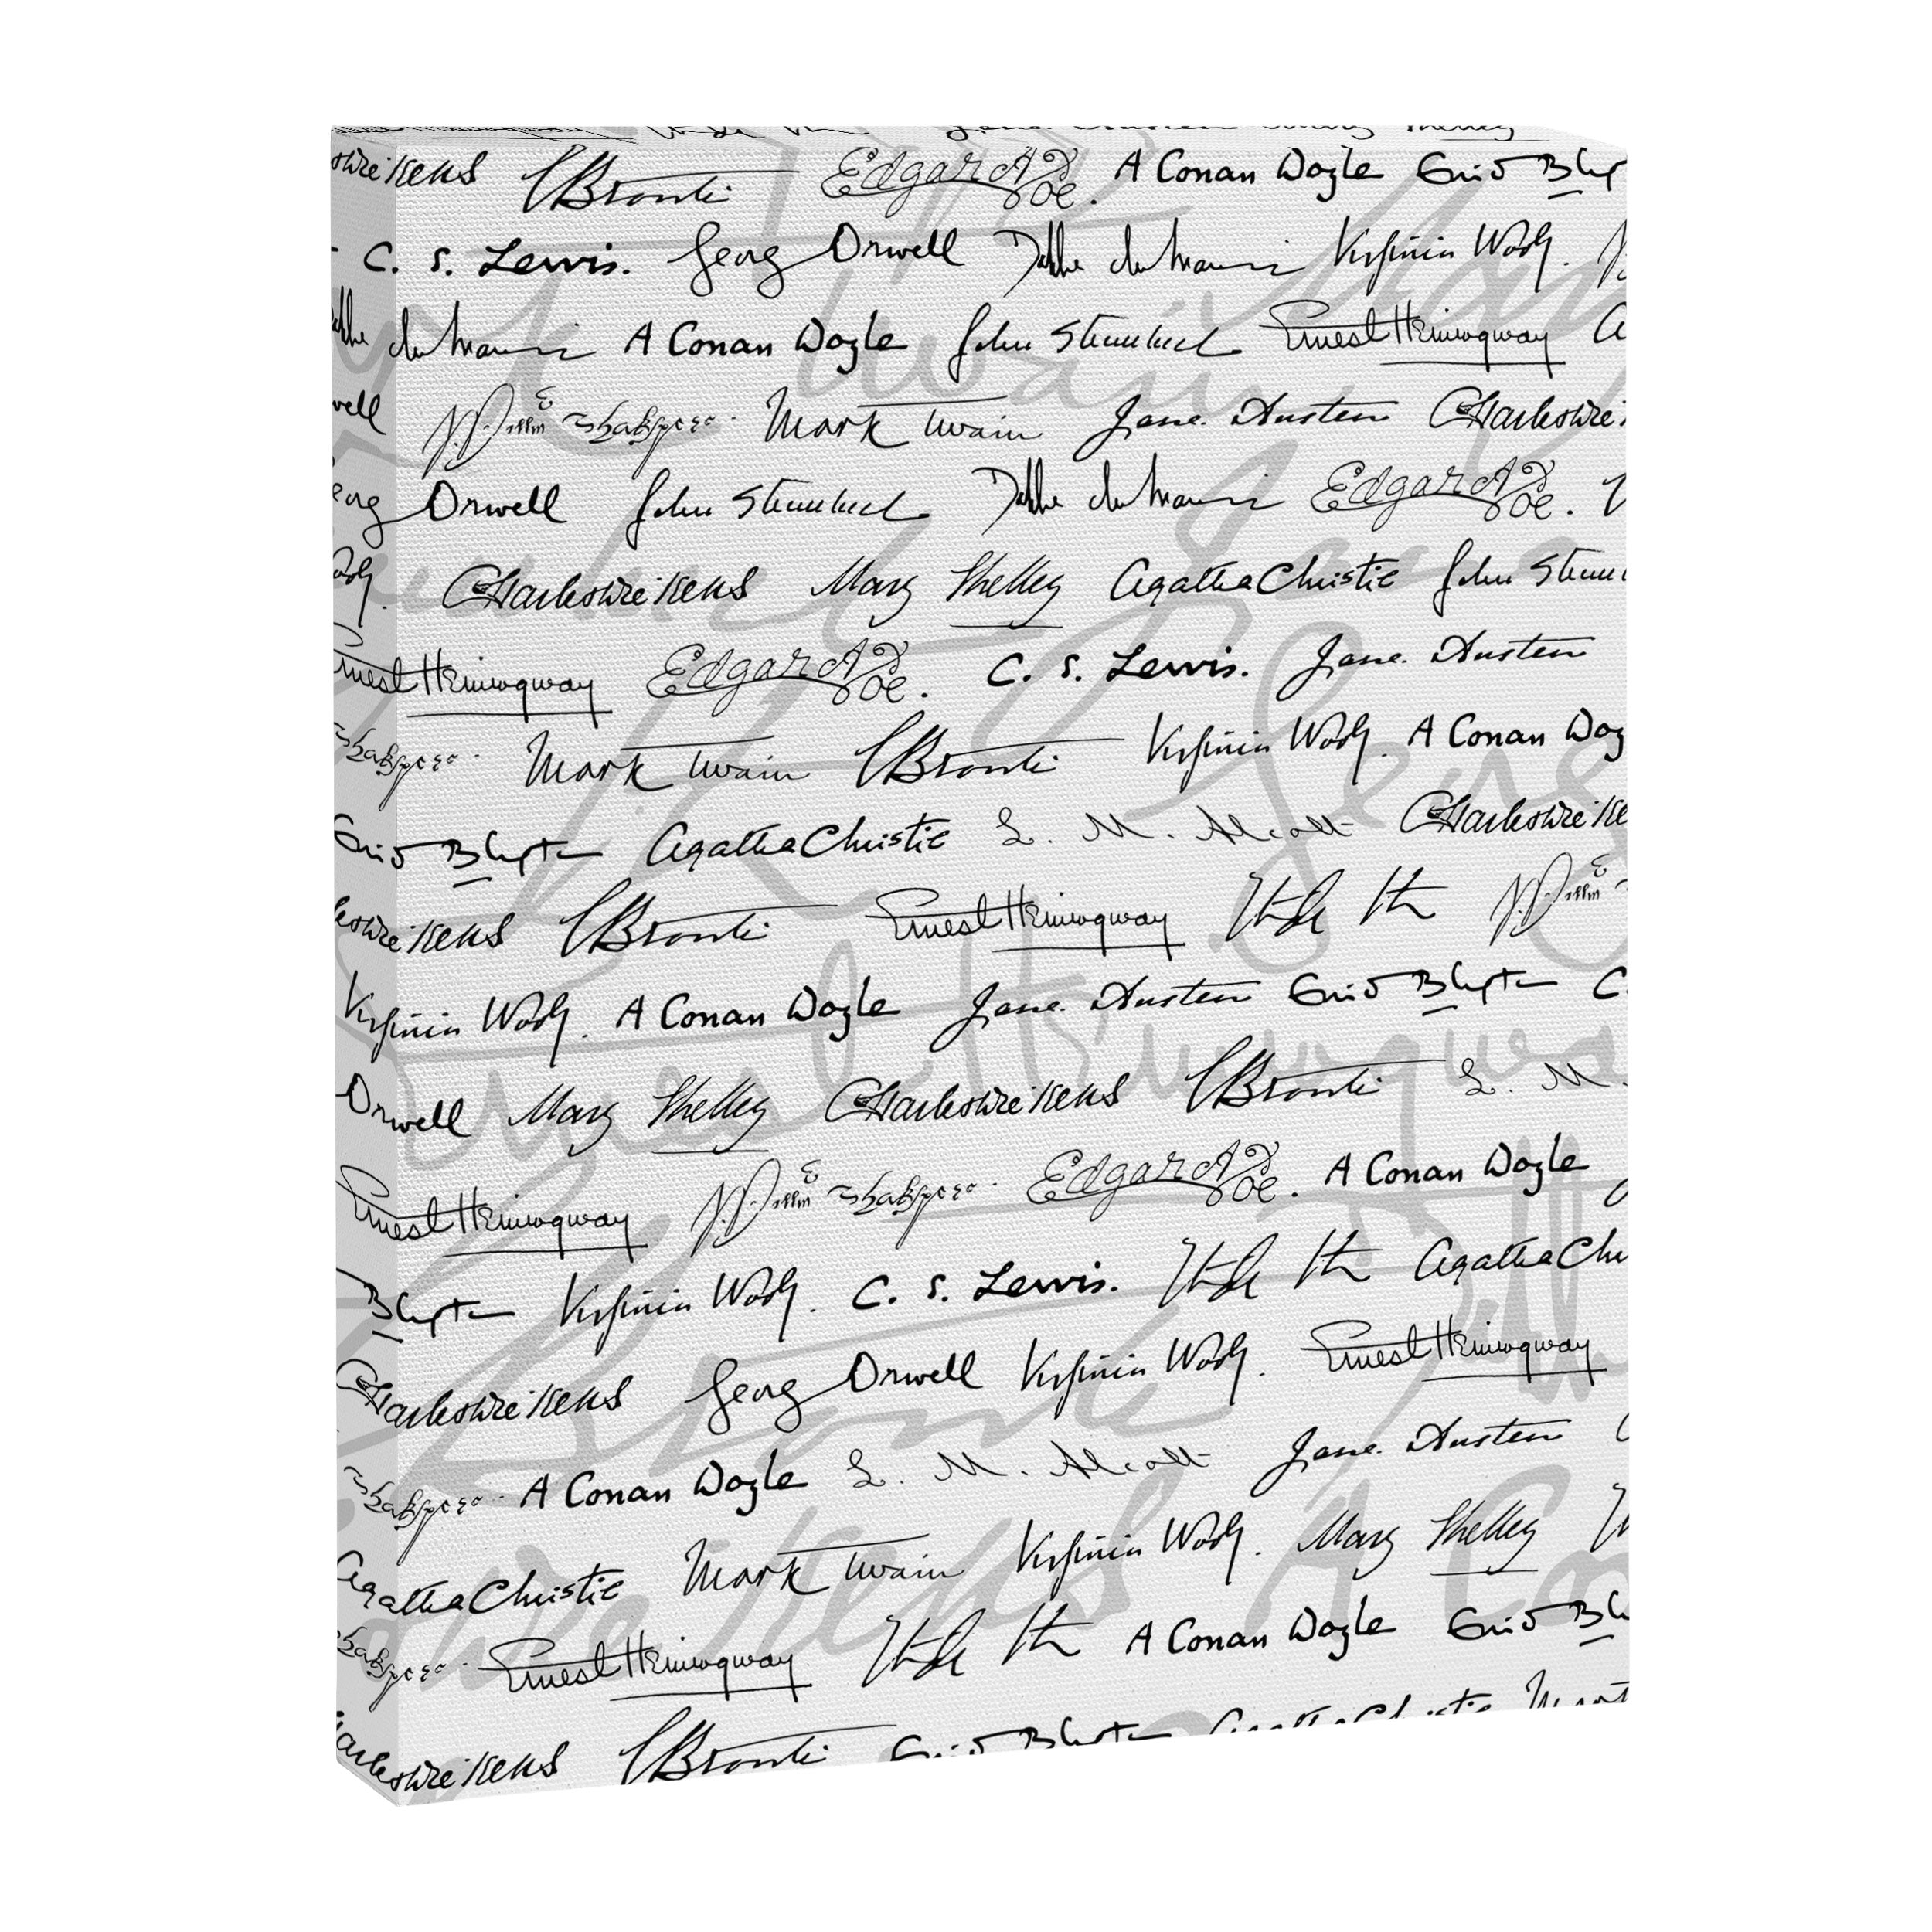 Jane Austen Mary Shelley
CharlesDickens CBronte Edgar A Poe. A Conan Doyle Enid Bly
C. S. Lewis. Georg Orwell Daphne du Maurier Virginia Woolf.
Daphne du Maurier A Conan Doyle John Steinbeck Ernest Hemingway
well William Shakspere Mark Twain Jane Austen CharlesDic
eorg Orwell John Steinbeck Daphne du Maurier Edgar A Poe.
CharlesDickens Mary Shelley Agatha Christie John Stein
Ernest Hemingway Edgar A Poe. C. S. Lewis. Jane Austen
Shakspere Mark Twain CBronte Virginia Woolf. A Conan Doy
Enid Blyton Agatha Christie L. M. Alcott CharlesDicke
lesDickens CBronte Ernest Hemingway William
Virginia Woolf. A Conan Doyle Jane Austen Enid Blyton C.
Orwell Mary Shelley CharlesDickens CBronte L. M.
Ernest Hemingway William Shakspere Edgar A Poe. A Conan Doyle
Blyton Virginia Woolf. C. S. Lewis. Agatha Chr
CharlesDickens Georg Orwell Virginia Woolf. Ernest Hemingway
Shakspere A Conan Doyle L. M. Alcott Jane Austen
Agatha Christie Mark Twain Virginia Woolf. Mary Shelley
Shakspere Ernest Hemingway A Conan Doyle Enid Bl
CharlesDickens CBronte Enid Blyton Agatha Christie